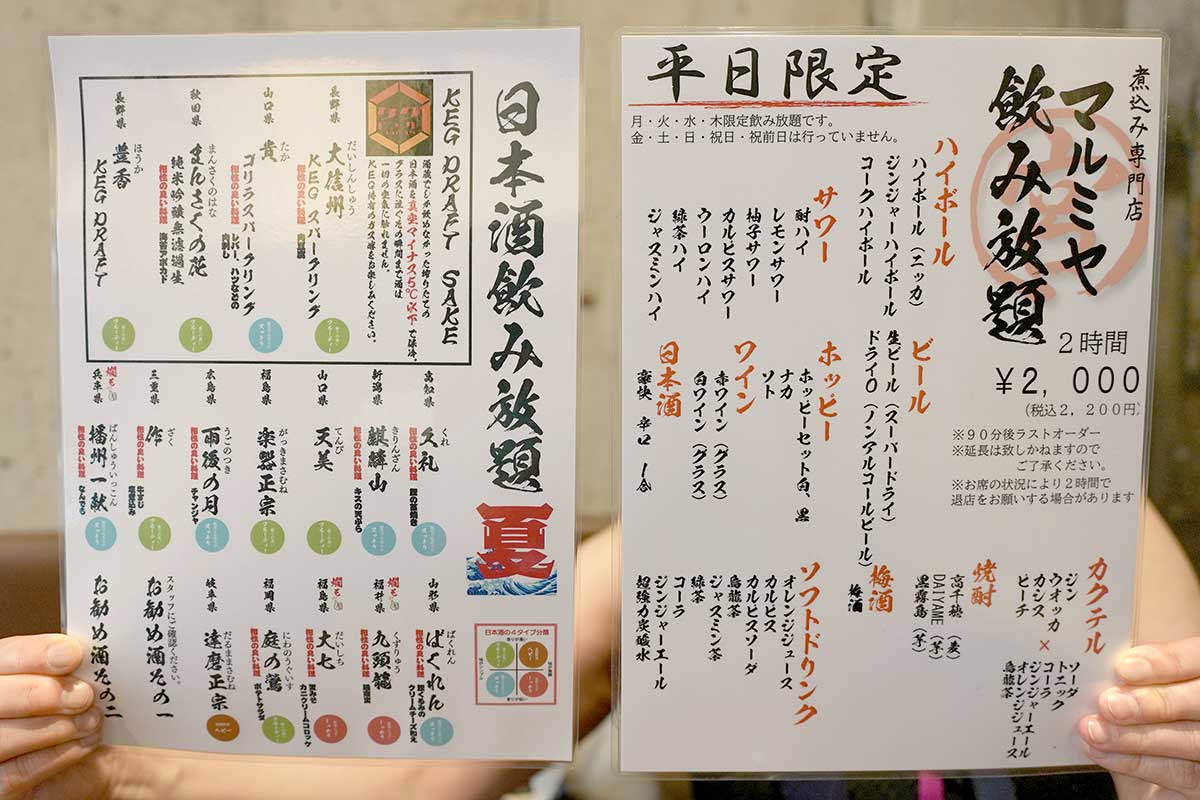 日本酒飲み放題
夏
KEG DRAFT SAKE
酒蔵でしか飲めなかった搾りたての
日本酒を真空マイナス5℃以下で保冷。
グラスに注ぐその瞬間まで酒は
一切の空気に触れません。
長野県
だいしんしゅう
大信州
KEG スパークリング
相性の良い料理
山口県
たか
貴
ゴリラスパークリング
相性の良い料理
レバー、ハツなどの
肉刺し
秋田県
まんさくのはな
まんさくの花
純米吟醸無濾過生
相性の良い料理
海苔アボカド
長野県
ほうか
豊香
KEG DRAFT
高知県
くれ
久礼
相性の良い料理
鰹の藁焼き
新潟県
きりんざん
麒麟山
相性の良い料理
キスの天ぷら
山口県
てんび
天美
福島県
がっきまさむね
楽器正宗
広島県
うごのつき
雨後の月
相性の良い料理
チャンジャ
三重県
ざく
作
相性の良い料理
牛すじ
塩煮込み
燗も
兵庫県
ばんしゅういっこん
播州一献
相性の良い料理
なんでも
山形県
ばくれん
ばくれん
相性の良い料理
クリームチーズ和え
燗も
福井県
くずりゅう
九頭龍
相性の良い料理
燗も
福島県
だいしち
大七
相性の良い料理
蟹みそ
カニクリームコロッケ
福岡県
にわのうぐいす
庭の鶯
相性の良い料理
ポテトサラダ
岐阜県
だるままさむね
達磨正宗
ヘビー
スタッフにご確認ください。
お勧め酒その一
お勧め酒その二
日本酒の4タイプ分類
煮込み専門店
マルミヤ
飲み放題
2時間
¥2,000
(税込2,200円)
※90分後ラストオーダー
※延長は致しかねますので
ご了承ください。
※お席の状況により2時間で
退店をお願いする場合があります
平日限定
月・火・水・木限定飲み放題です。
金・土・日・祝日・祝前日は行っていません。
ハイボール
ハイボール(ニッカ)
ジンジャーハイボール
コークハイボール
サワー
酎ハイ
レモンサワー
柚子サワー
カルピスサワー
ウーロンハイ
緑茶ハイ
ジャスミンハイ
ビール
生ビール(スーパードライ)
ドライ0(ノンアルコールビール)
ホッピー
ホッピーセット白、黒
ナカ
ソト
ワイン
赤ワイン(グラス)
白ワイン(グラス)
日本酒
豪快 辛口 一合
カクテル
ジン
ウオッカ
カシス
ピーチ
×
ソーダ
トニック
コーラ
ジンジャーエール
オレンジジュース
烏龍茶
焼酎
高千穂(麦)
DAIYAME(芋)
黒霧島(芋)
梅酒
梅酒
ソフトドリンク
オレンジジュース
カルピス
カルピスソーダ
烏龍茶
ジャスミン茶
緑茶
コーラ
ジンジャーエール
超強力炭酸水